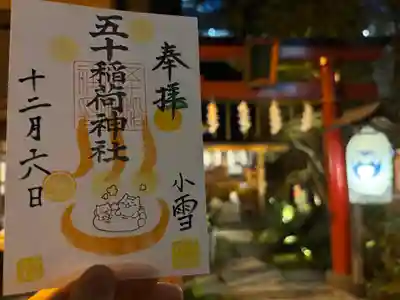 奉拝
五十稲荷神社
小雪
十二月十六日